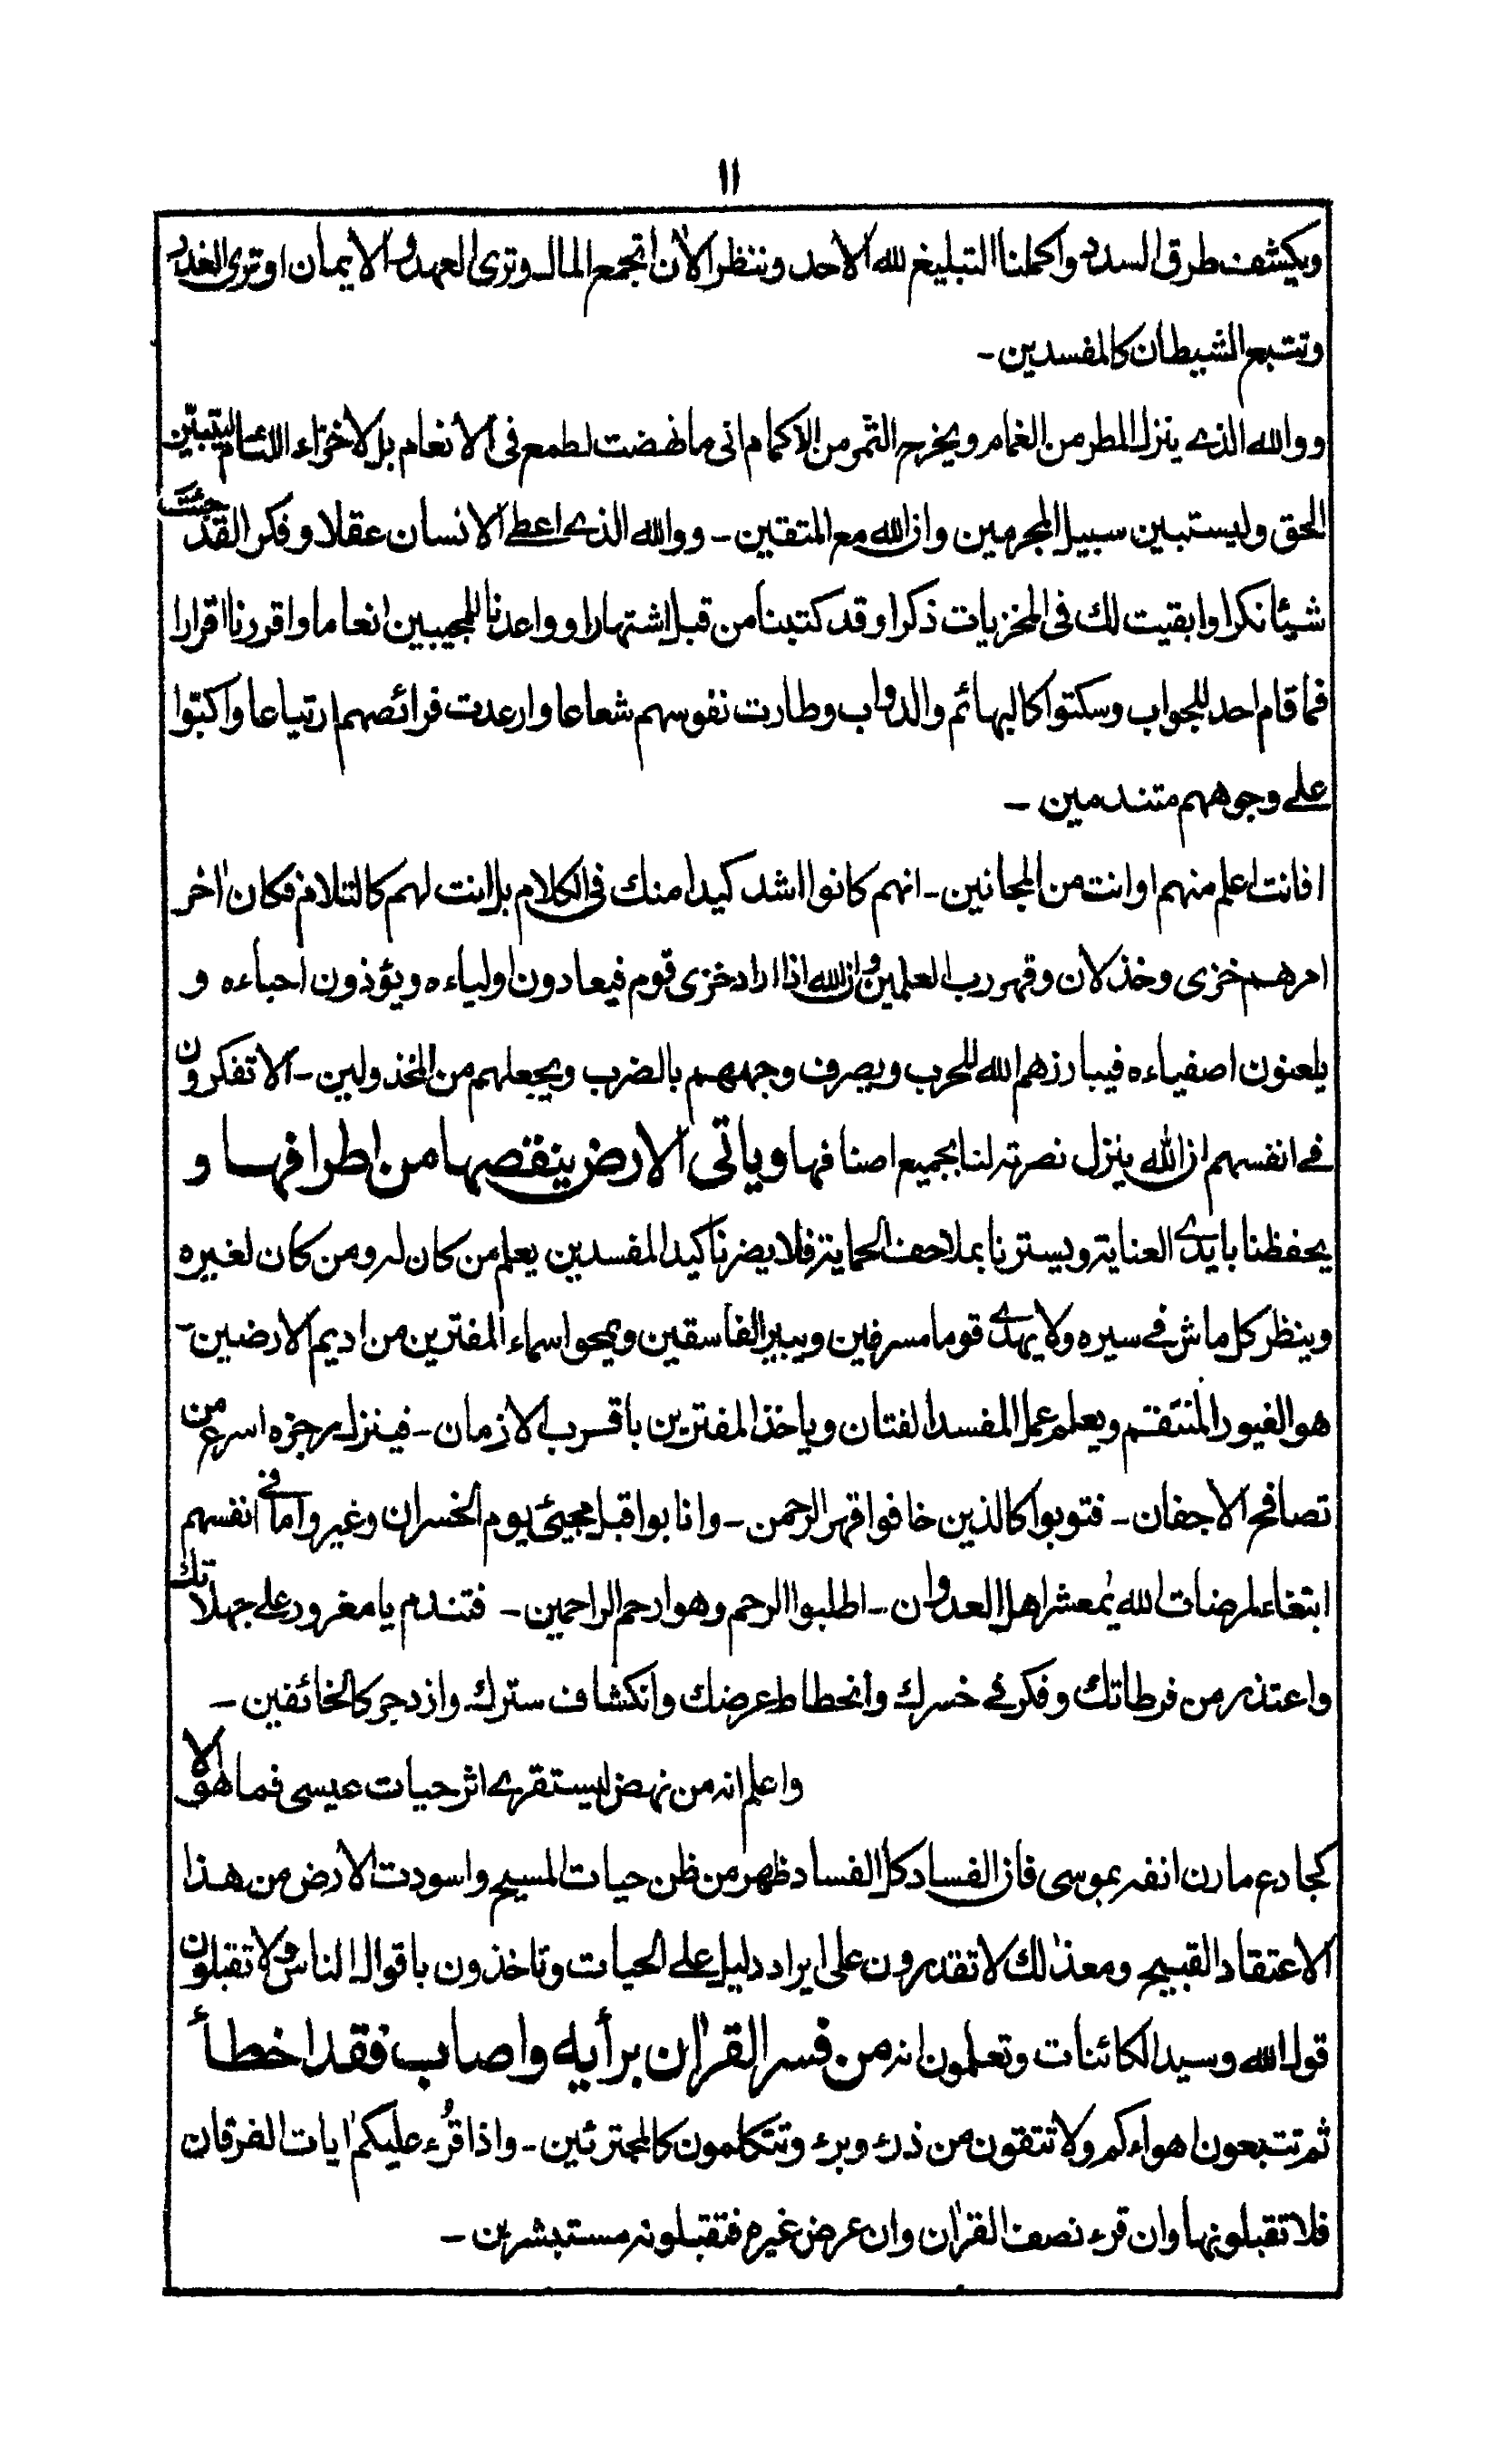 ١١
ويكشف طرق السداد واكملنا التبليغ لله الاحد وننظر الاٰن اتجمع المال وترى العهد والايمان او ترى الغدر
وتتبع الشيطان كالمفسدين۔
ووالله الذى ينزل المطر من الغمام ويخرج الثمر من الاكمام انى ما نهضت لطمع فى الانعام بل لاخزاء اللئام ليتبيّن
الحق وليستبين سبيل المجرمين وان الله مع المتقين۔ ووالله الذى اعطى الانسان عقلا وفكرا لقد جئت
شيئا نكرا وابقيت لك فى المخزيات ذكرا وقد كتبنا من قبل اشتهارا وواعدنا للمجيبين انعاما واقررنا اقرارا
فما قام احد للجواب وسكتوا كالبهائم والدواب وطارت نفوسهم شعاعا وارعدت فرائصهم ارتياعا واكبّوا
على وجوههم متندمين۔
افانت اعلم منهم او انت من المجانين۔ انهم كانوا اشد كيدا منك فى الكلام بل انت لهم كالتلام فكان اٰخر
امرهم خزى وخذلان وقهر رب العلمين وان الله اذا اراد خزى قوم فيعادون اولياءه ويؤذون احباءه و
يلعنون اصفياءه فيبارزهم الله للحرب ويصرف وجههم بالضرب ويجعلهم من المخذولين۔ الا تفكرون
فى انفسهم ان الله ينزل نصرته لنا بجميع اصنافها وياتى الارض ينقصها من اطرافها و
يحفظنا بايدى العناية ويسترنا بملاحف الحماية فلا يضرنا كيد المفسدين يعلم من كان له ومن كان لغيره
وينظر كل ماش فى سيره ولا يهدى قوما مسرفين ويبير الفاسقين ويمحوا اسماء المفترين من اديم الارضين۔
هو الغيور المنتقم ويعلم عمل المفسد الفتان وياخذ المفترين باقرب الازمان۔ فينزل رجزه اسرع من
تصافح الاجفان۔ فتوبوا كالذين خافوا قهر الرحمن۔ وانابوا قبل مجيئ يوم الخسران وغيروا ما فى انفسهم
ابتغاء لمرضات الله يٰمعشر اهل العدوان۔ اطلبوا الرحم وهو ارحم الراحمين۔ فتندم يا مغرور على جهلاتك
واعتذر من فرطاتك وفكر فى خسرك وانحطاط عرضك وانكشاف سترك وازدجر كالخائفين۔
واعلم انه من نهض ليستقرى اثر حيات عيسى فما هو الا
كجادع مارن انفه بموسى فان الفساد كل الفساد ظهر من ظن حيات المسيح واسودت الارض من هذا
الاعتقاد القبيح ومع ذٰلك لا تقدرون على ايراد دليل على الحيات وتاخذون باقوال الناس ولا تقبلون
قول الله وسيد الكائنات وتعلمون انه من فسر القراٰن برأيه واصاب فقد اخطأ
ثم تتبعون اهواءكم ولا تتقون من ذرء وبرء وتتكلمون كالمجترئين۔ واذا قُرء عليكم اٰيات الفرقان
فلا تقبلونها وان قرء نصف القراٰن وان عرض غيره فتقبلونه مستبشرين۔